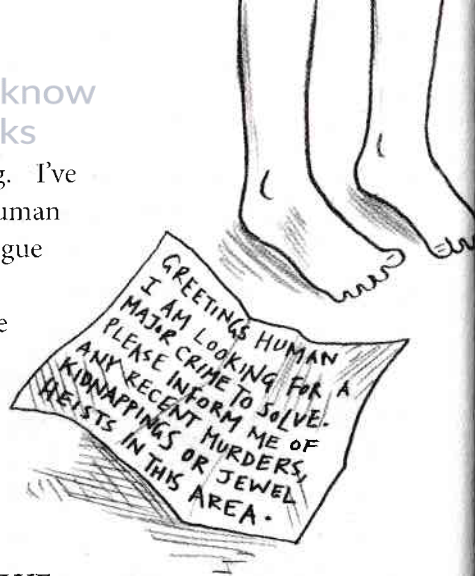 know
ks
g. I've
uman
gue
e
GREETINGS HUMAN
I AM LOOKING FOR A
MAJOR CRIME TO SOLVE.
PLEASE INFORM ME OF
ANY RECENT MURDERS,
KIDNAPPINGS OR JEWEL
HEISTS IN THIS AREA.